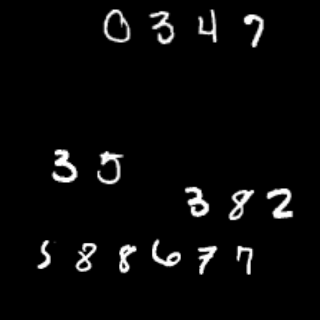 0347
35
382
588677